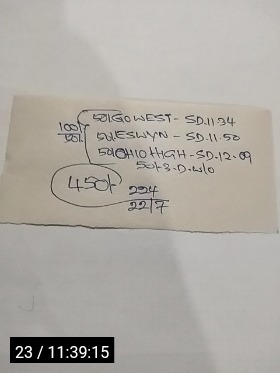 50/GO WEST - SD.11.34
100/- 50/ESWYN - SD.11.50
50/OHIO HIGH - SD.12.09
50/- S.D.W/O
450/- 224
22/7
23 / 11:39:15